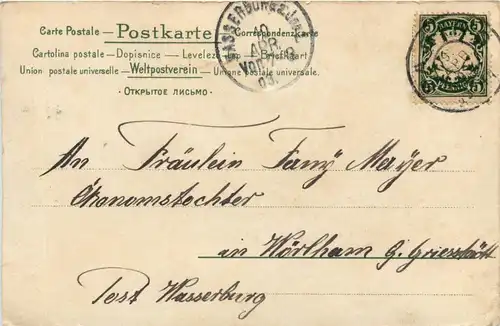 Carte Postale – Postkarte – Correspondenzkarte
Cartolina postale – Dopisnice – Levelező – Brefkaart
Union postale universelle – Weltpostverein – Unione postale universale.
· ОТКРЫТОЕ ПИСЬМО ·
WASSERBURG a. Inn
10
APR.
Vorm.
03.
BAYERN
5 5
PFENNIG
An Fräulein Fany Mayer
Ökonomstochter
in Wörlham G. Griesstätt
Post Wasserburg